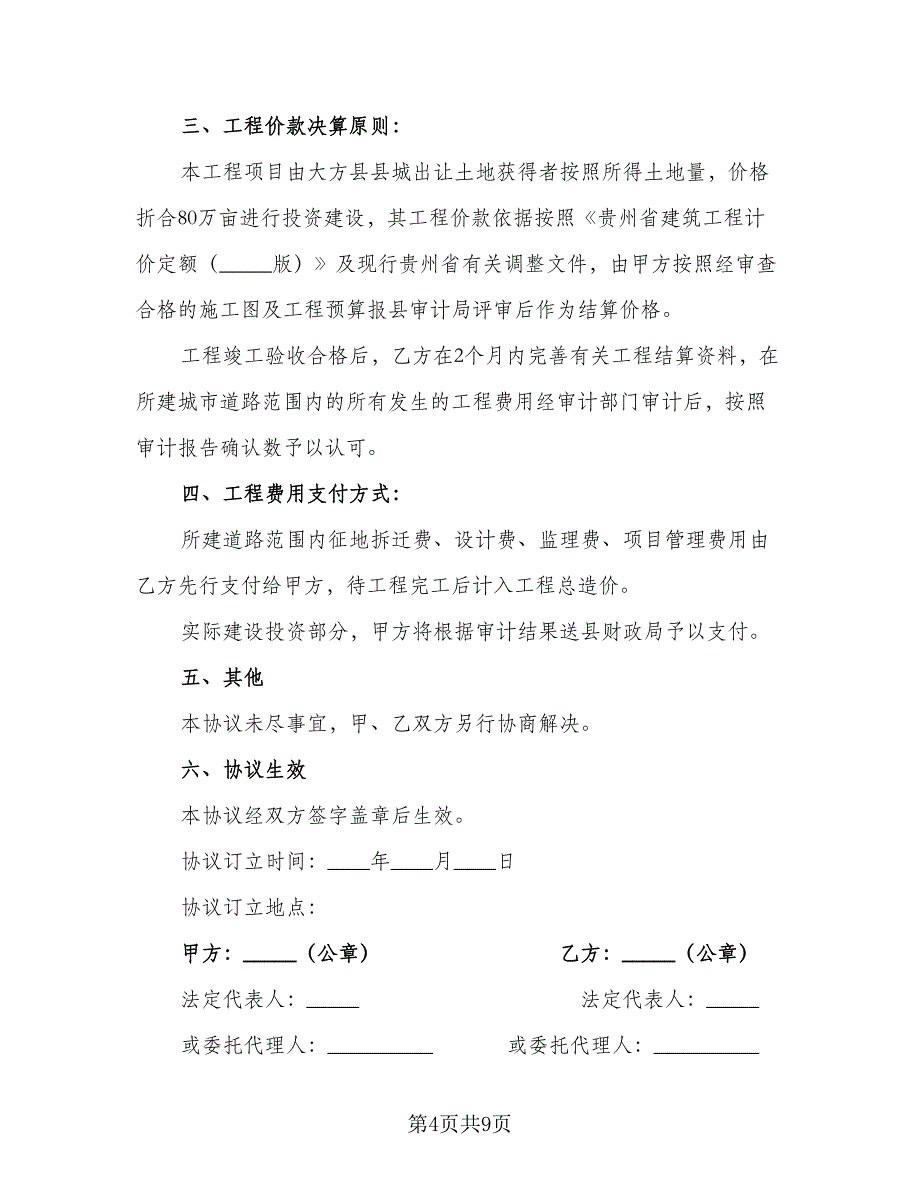 三、工程价款决算原则：
本工程项目由大方县县城出让土地获得者按照所得土地量，价格
折合80万亩进行投资建设，其工程价款依据按照《贵州省建筑工程计
价定额（_____版）》及现行贵州省有关调整文件，由甲方按照经审查
合格的施工图及工程预算报县审计局评审后作为结算价格。
工程竣工验收合格后，乙方在2个月内完善有关工程结算资料，在
所建城市道路范围内的所有发生的工程费用经审计部门审计后，按照
审计报告确认数予以认可。
四、工程费用支付方式：
所建道路范围内征地拆迁费、设计费、监理费、项目管理费用由
乙方先行支付给甲方，待工程完工后计入工程总造价。
实际建设投资部分，甲方将根据审计结果送县财政局予以支付。
五、其他
本协议未尽事宜，甲、乙双方另行协商解决。
六、协议生效
本协议经双方签字盖章后生效。
协议订立时间：____年____月____日
协议订立地点：
甲方：_____（公章） 乙方：_____（公章）
法定代表人：_____ 法定代表人：_____
或委托代理人：__________ 或委托代理人：__________
第4页共9页